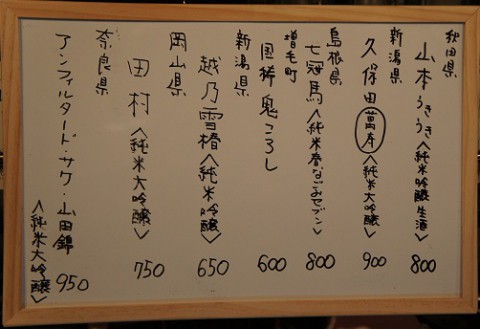 秋田県
山本うきうき〈純米吟醸生酒〉 800
新潟県
久保田 萬寿 〈純米大吟醸〉 900
島根県
七冠馬〈純米春なごみセブン〉 800
増毛町
国稀 鬼ころし 600
新潟県
越乃雪椿〈純米吟醸〉 650
岡山県
田村〈純米大吟醸〉 750
奈良県
アンフィルタード・サケ・山田錦
〈純米大吟醸〉 950